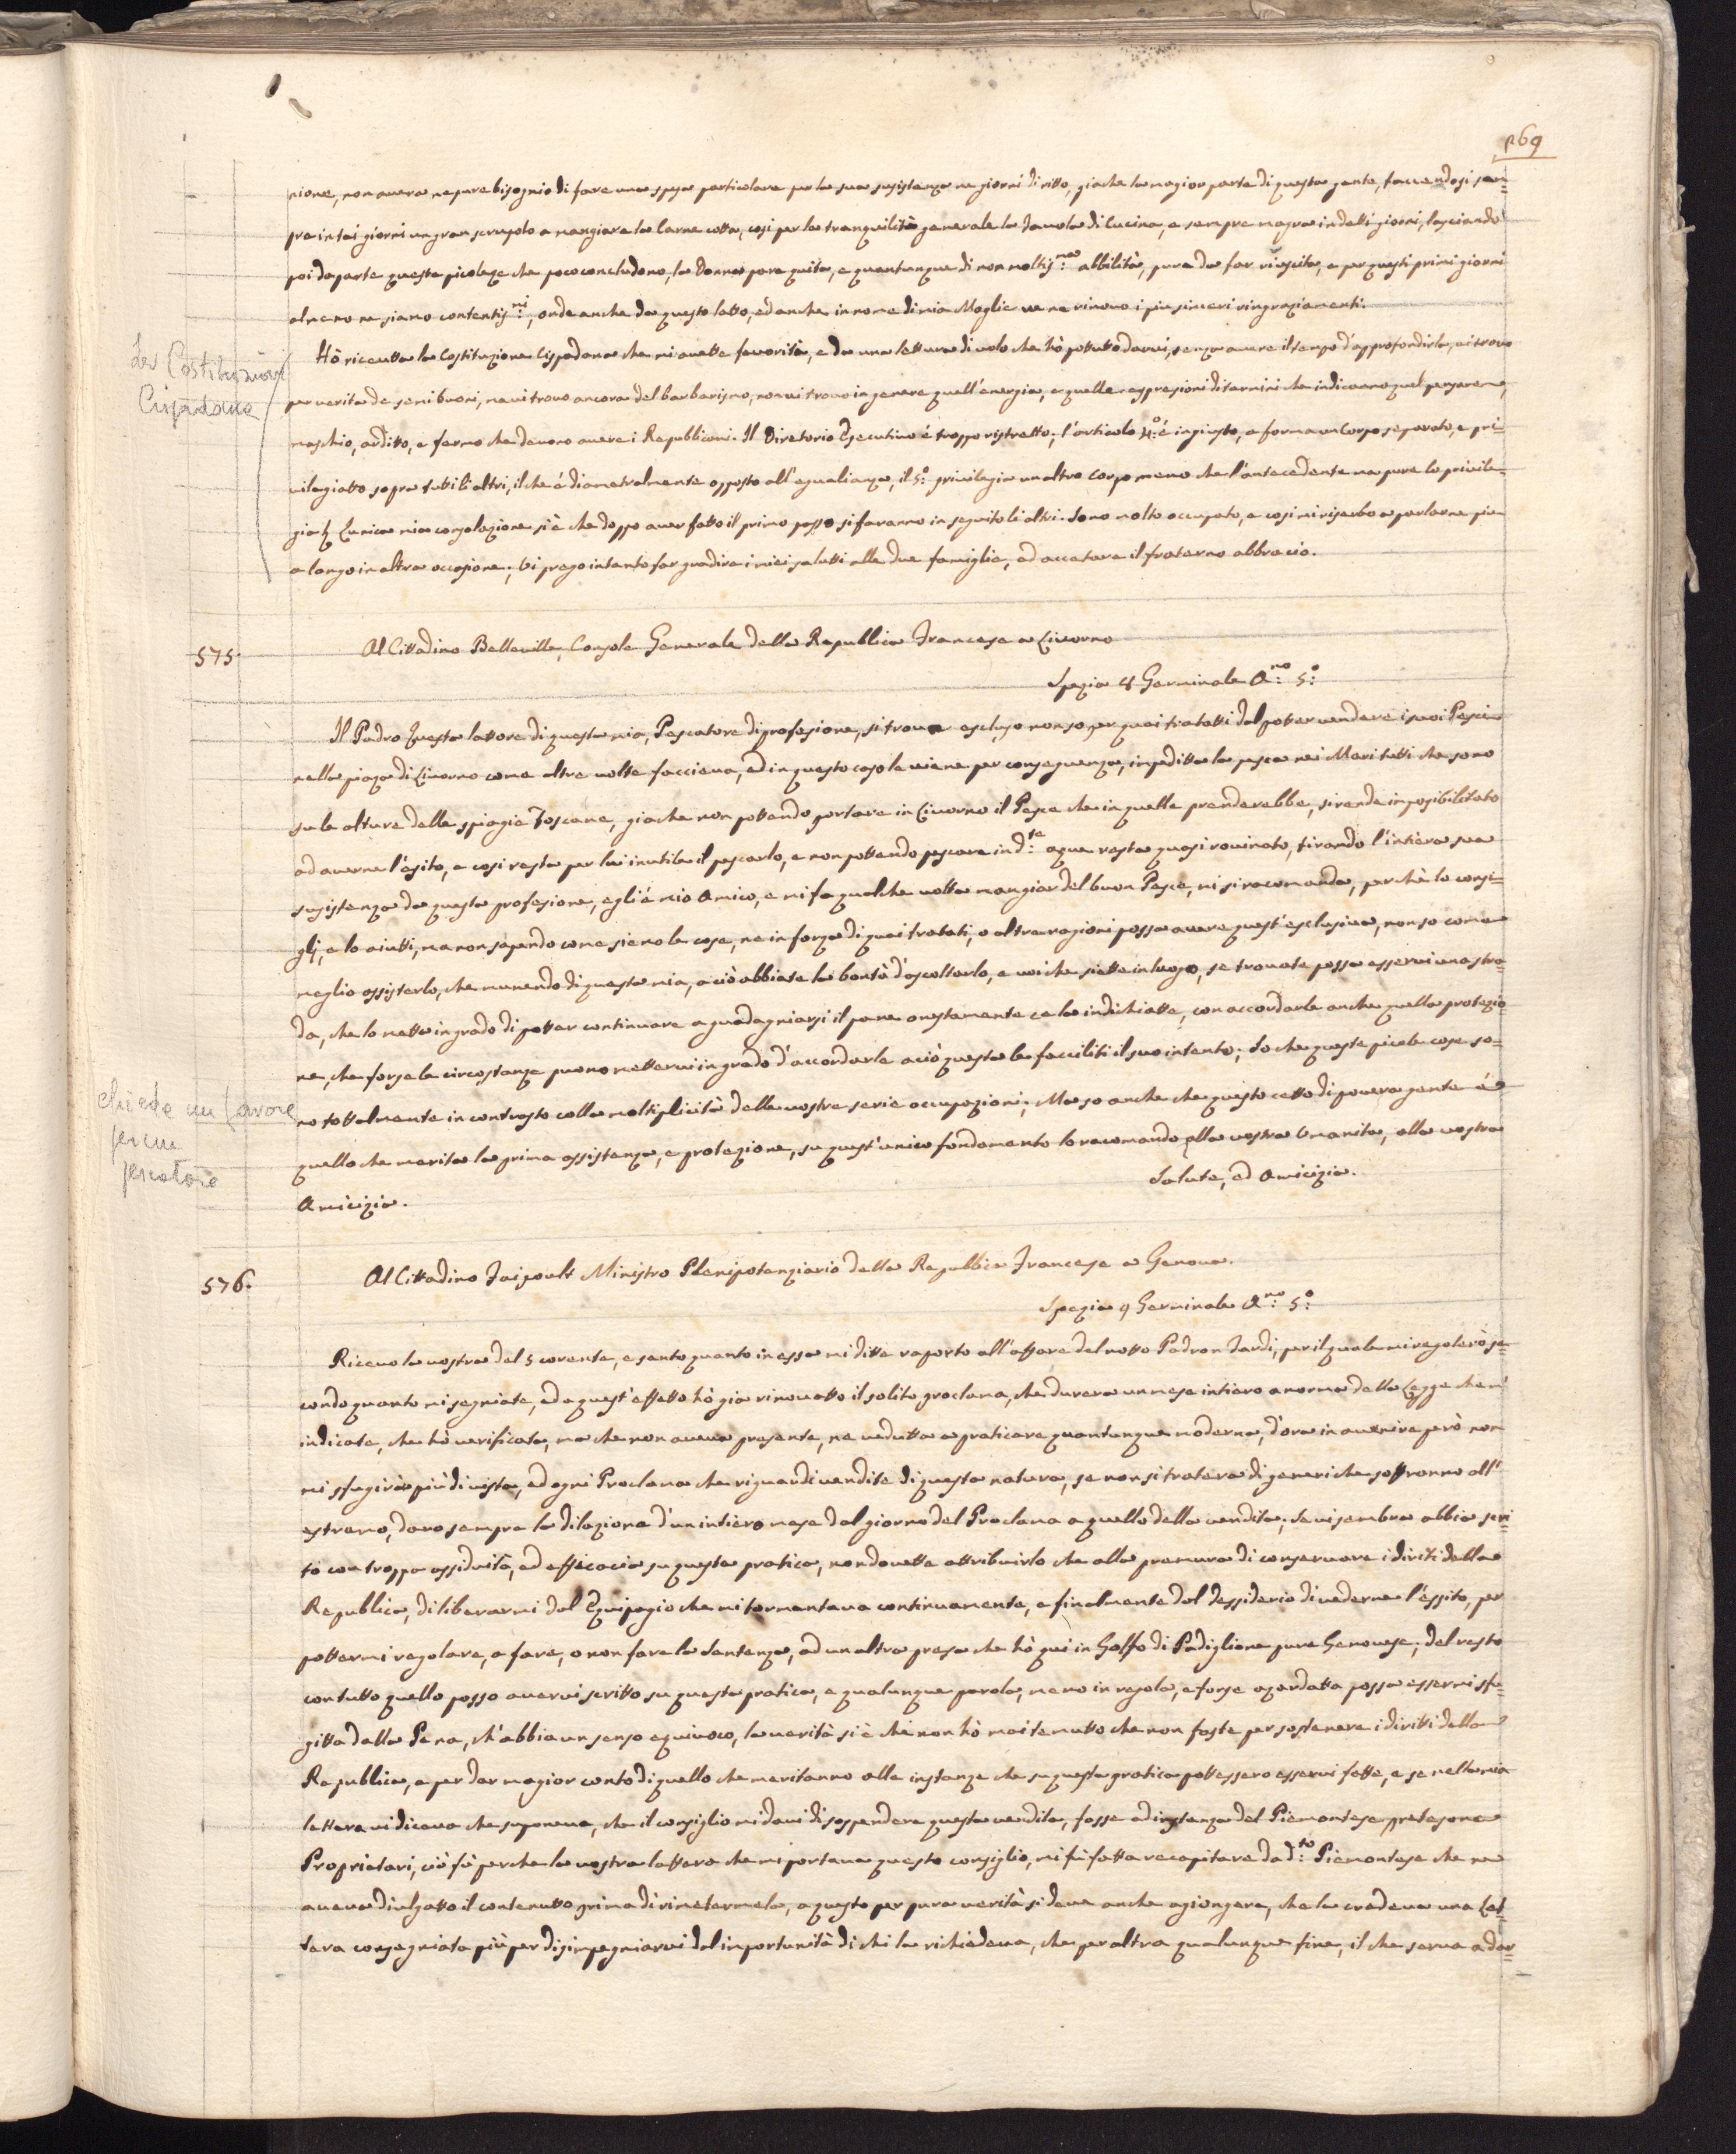 269
nione, non avera ne pure bisognio di fare una spesa particolare per la sua susistenza ne giorni di ritto, giache la magior parte di questa gente, faccendosi sem=
pre in tai giorni un gran scrupolo a mangiare la Carne cotta, cosi per la tranquilità generale la Tavola di Cucina, e sempre magra in detti giorni, lasciando
poi da parte queste picoleze che poco concludono, la Donna pare quita, e quantunque di non moltis.ma abbilità, pure da far riuscita, e per questi primi giorni
almeno ne siamo contentis.mi, onde anche da questo latto, ed anche in nome di mia Moglie ve ne rinovo i piu sinceri ringraziamenti.
Hò ricevutta la Costituzione Cispadana che mi avette favorita, e da una lettura di volo che hò pottutto darvi, senza avere il tempo d'approfondirla, vi trovo
per verita de semi buoni, ma vi trovo ancora del barbarismo, non vi trovo in genere quell'energia, e quelle espresioni di termini che indicanno quel pensare
maschio, arditto, e fermo che devono avere i Republicani. Il Diretorio Esecutivo é troppo ristretto; l'articolo 4.o é ingiusto, e forma un Corpo separato, e pri=
vilegiatto sopra tutti li altri, il che é diametralmente opposto all'egualianza, il 5.o privilegia un altro Corpo meno che l'antecedente ma pure lo privile=
gia. L'unica mia consolazione si è che doppo aver fatto il primo passo si faranno in seguito li altri. Sono molto occupato, e cosi mi riserbo a parlarne piu
a longo in altra occasione; Vi prego intanto far gradire i miei salutti alle due famiglie, ed accetare il fraterno abbracio.
La Costituzione
Cispadana
575.
Al Cittadino Belleville, Console Generale della Republica Francese a Livorno
Spezia 8 Germinale A.no 5.o
Il Padro Questa lattore di questa mia, Pescatore di profesione, si trova escluso non so per quai tratatti dal potter vendere i suoi Pesci
nella piaza di Livorno come altre volte facceva, ed in questo caso le viene per conseguenza, impeditta la pesca nei Mari tutti che sono
su le alture delle spiagie Toscane, giache non pottendo portare in Livorno il Pesce che in quelle prenderebbe, si rende imposibilitato
ad averne l'ésito, e cosi resta per lui inutile il pescarlo, e non pottendo pescare in d.te aque resta quasi rovinato, tirando l'intiera sua
susistenza da questa profesione, egli é mio Amico, e mi fa qualche volta mangiar del buon Pesce, mi si racomanda, perchè lo consi=
gli, e lo aiutti, ma non sapendo come sieno le cose, ne in forza di quai tratati, o altre ragioni possa avere quest'esclusiva, non so come
meglio assisterlo, che munendo di questa mia, acciò abbiate la bontà d'ascoltarlo, e voi che siette in luogo, se trovate possa esservi una stra=
da, che lo metta in grado di potter continuare a guadagniarsi il pane onestamente ce la indichiatte, con accordarle anche quella protezio=
ne, che forse le circostanze puono mettervi in grado d'accordarle aciò questa le facciliti il suo intento; So che queste picole cose so=
no tottalmente in contrasto colla moltiplicità delle vostre serie occupazioni; Ma so anche che questo cetto di povera gente é
quello che merita la prima assistenza, e protezione, su quest'unico fondamento lo racomando alla vostra Umanita, alla vostra
Amicizia.
Salute, ed Amicizia.
chiede un favore
per un
pescatore
576.
Al Cittadino Faipoult Ministro Plenipotenziario della Republica Francese a Genova.
Spezia 9 Germinale A.no 5.o
Ricevo la vostra del 5 corente, e sento quanto in essa mi ditte raporto all'affare del notto Padron Tardi, per il quale mi regolerò se=
condo quanto mi segniate, ed a quest'effetto hò gia rinovatto il solito proclama, che durera un mese intiero a norma della Legge che m'
indicate, che hò verificata, ma che non aveva presente, ne vedutta a praticare quantunque moderna, d'ora in avenire però non
mi sfugirà più di vista, ed ogni Proclama che riguardi vendite di questa natura, se non si tratera di generi che soffranno all'
estremo, daro sempre la dilazione d'un intiero mese dal giorno del Proclama a quello della vendita; Se vi sembra abbia scri=
to con troppa assiduità, ed efficacia su questa pratica, non dovette attribuirlo che alla premura di conservare i diriti della
Republica, di liberarmi dal Equipagio che mi tormentava continuamente, e finalmente dal dessiderio di vederne l'éssito, per
pottermi regolare, a fare, o non fare la Sentenza, ad un altra presa che hò qui in Golfo di Padiglione pure Genovese; del resto
con tutto quello posso avervi scritto su questa pratica, e qualunque parola, meno in regola, e forse azardatta possa essermi sfu=
gitta dalla Pena, ch'abbia un senso equivoco, la verità si è che non hò mai temutto che non foste per sostenere i diritti della
Republica, e per dar magior conto di quello che meritanno alle instanze che su questa pratica pottessero esservi fatte, e se nella mia
lettera vi diceva che suponeva, che il consiglio mi davi di sospendere questa vendita, fosse ad instanza del Piemontese pretesone
Proprietari, ciò fù perche la vostra lettera che mi portava questo consiglio, mi fù fatta recapitare da d.to Piemontese che ne
aveva divulgatto il contenutto prima di rimetermela, a questo per pura verità si deve anche agiongere, che la credeva una Let=
tera consegniata più per disimpegniarvi dal importunità di chi la richiedeva, che per altra qualunque fine, il che serva a dar=